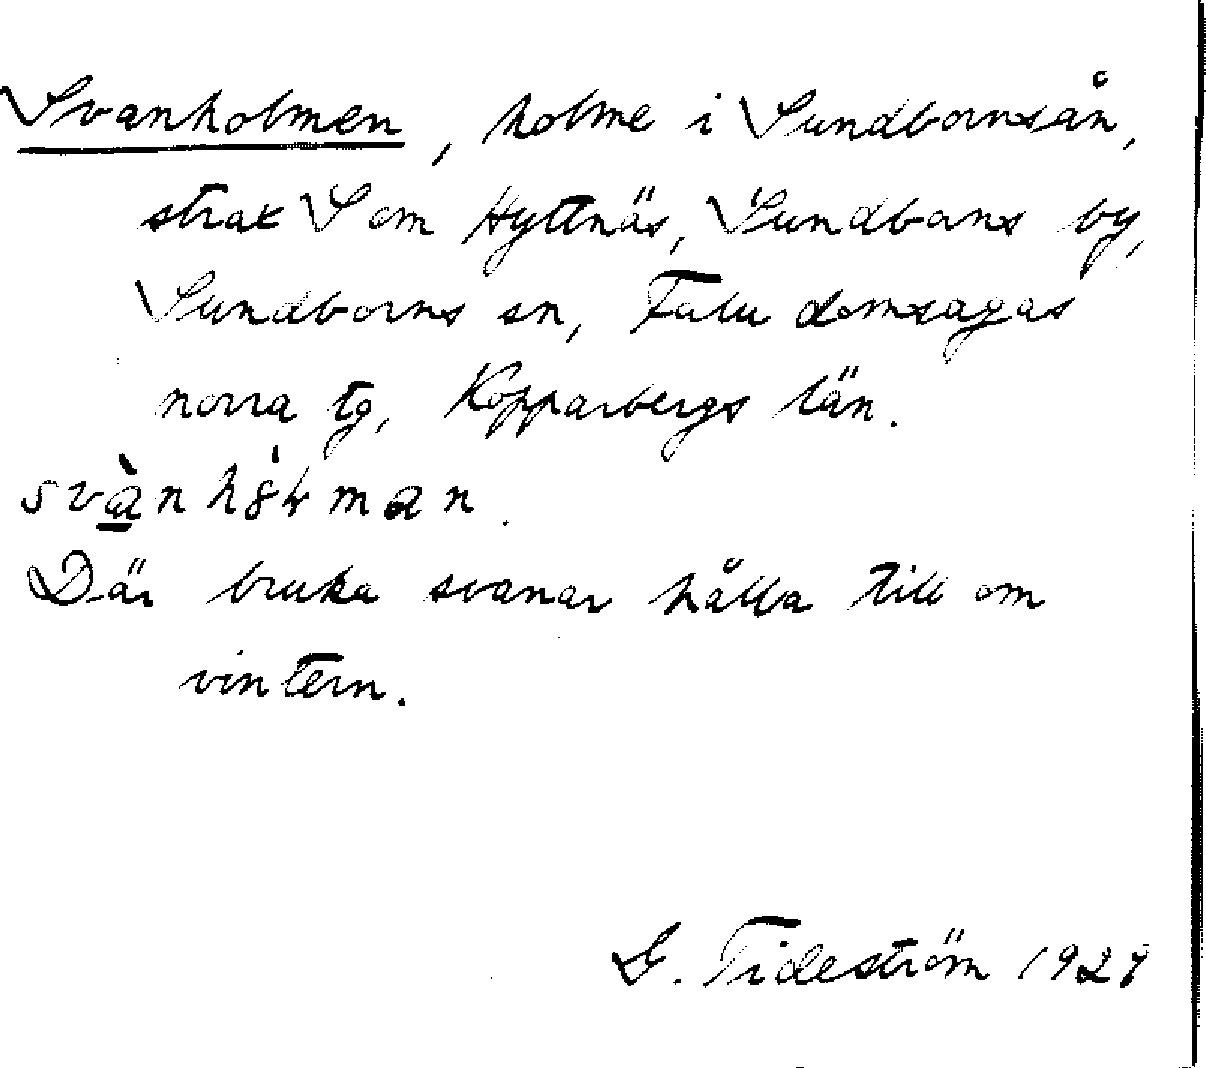 Svanholmen, holme i Sundbornsån,
strax S om Hyttnäs, Sundborns by,
Sundborns sn, Falu domsagas
norra tg, Kopparbergs län.
Där bruka svanar hålla till om
vintern.
G. Tideström